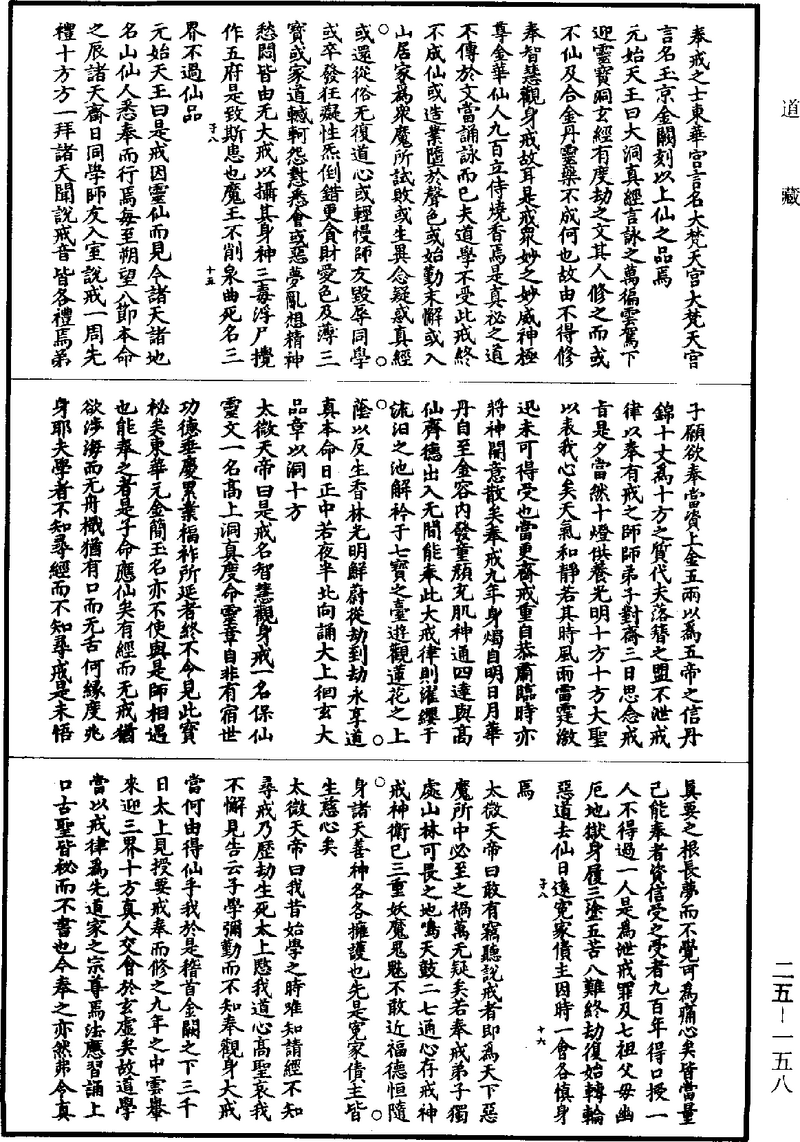 道藏
奉戒之士東華宮言名大梵天宮大梵天宮
言名玉京金闕刻以上仙之品焉
元始天王曰大洞真經言詠之萬徧雲駕下
迎靈寶洞玄經有度劫之文其人修之而或
不仙及合金丹靈藥不成何也故由不得修
奉智慧觀身戒故耳是戒眾妙之妙威神極
尊金華仙人九百立侍燒香焉是真祕之道
不傳於文當誦詠而已夫道學不受此戒終
不成仙或造業墮於聲色或始勤末懈或入
山居家為眾魔所試敗或生異念疑惑真經
或還從俗无復道心或輕慢師友毀辱同學
或卒發狂癡性炁倒錯更貪財愛色及薄三
寶或家道轗軻怨懟悉會或惡夢亂想精神
愁悶皆由无大戒以攝其身神三毒浮尸攪
作五府是致斯患也魔王不削泉曲死名三
界不過仙品
子八 十五
元始天王曰是戒因靈仙而見今諸天諸地
名山仙人悉奉而行焉每至朔望八節本命
之辰諸天齋日同學師友入室說戒一周先
禮十方方一拜諸天聞說戒音皆各禮焉弟
子願欲奉當資上金五兩以為五帝之信丹
錦十丈為十方之質代夫落簪之盟不泄戒
律以奉有戒之師師弟子對齋三日思念戒
旨是夕當然十燈供養光明十方十方大聖
以表我心矣天氣和靜若其時風雨雷霆激
迅未可得受也當更齋戒重自恭肅臨時亦
將神開意散矣奉戒九年身燭自明日月華
丹自至金容內發童顏充肌神通四達與高
仙齊德出入无間能奉此大戒律則濯纓于
流汨之池解衿于七寶之臺遊觀蓮花之上
蔭以反生香林光明鮮蔚從劫到劫永享道
真本命日正中若夜半北向誦大上徊玄大
品章以洞十方
太微天帝曰是戒名智慧觀身戒一名保仙
靈文一名高上洞真度命靈章自非有宿世
功德垂慶累業福祚所延者終不令見此寶
祕矣東華元金簡玉名亦不使與是師相遇
也能奉之者是子命應仙矣有經而无戒猶
欲涉海而无舟檝猶有口而无舌何緣度兆
身耶夫學者不知尋經而不知尋戒是未悟
真要之根長夢而不覺可為痛心矣皆當量
己能奉者資信受之受者九百年得口授一
人不得過一人是為泄戒罪及七祖父母幽
厄地獄身履三塗五苦八難終劫復始轉輪
惡道去仙日遠冤家債主因時一會各慎身
焉
子八 十六
太微天帝曰敢有竊聽說戒者即為天下惡
魔所中必至之禍萬无疑矣若奉戒弟子獨
處山林可畏之地鳴天鼓二七通心存戒神
戒神衛已三重妖魔鬼魅不敢近福德恒隨
身諸天善神各各擁護也先是冤家債主皆
生慈心矣
太微天帝曰我昔始學之時唯知請經不知
尋戒乃歷劫生死太上愍我道心高聖哀我
不懈見告云子學彌勤而不知奉觀身大戒
當何由得仙乎我於是稽首金闕之下三千
日太上見授要戒奉而修之九年之中雲轝
來迎三界十方真人交會於玄虛矣故道學
當以戒律為先道家之宗尊焉法應習誦上
口古聖皆祕而不書也今奉之亦然弗令真
二五－一五八